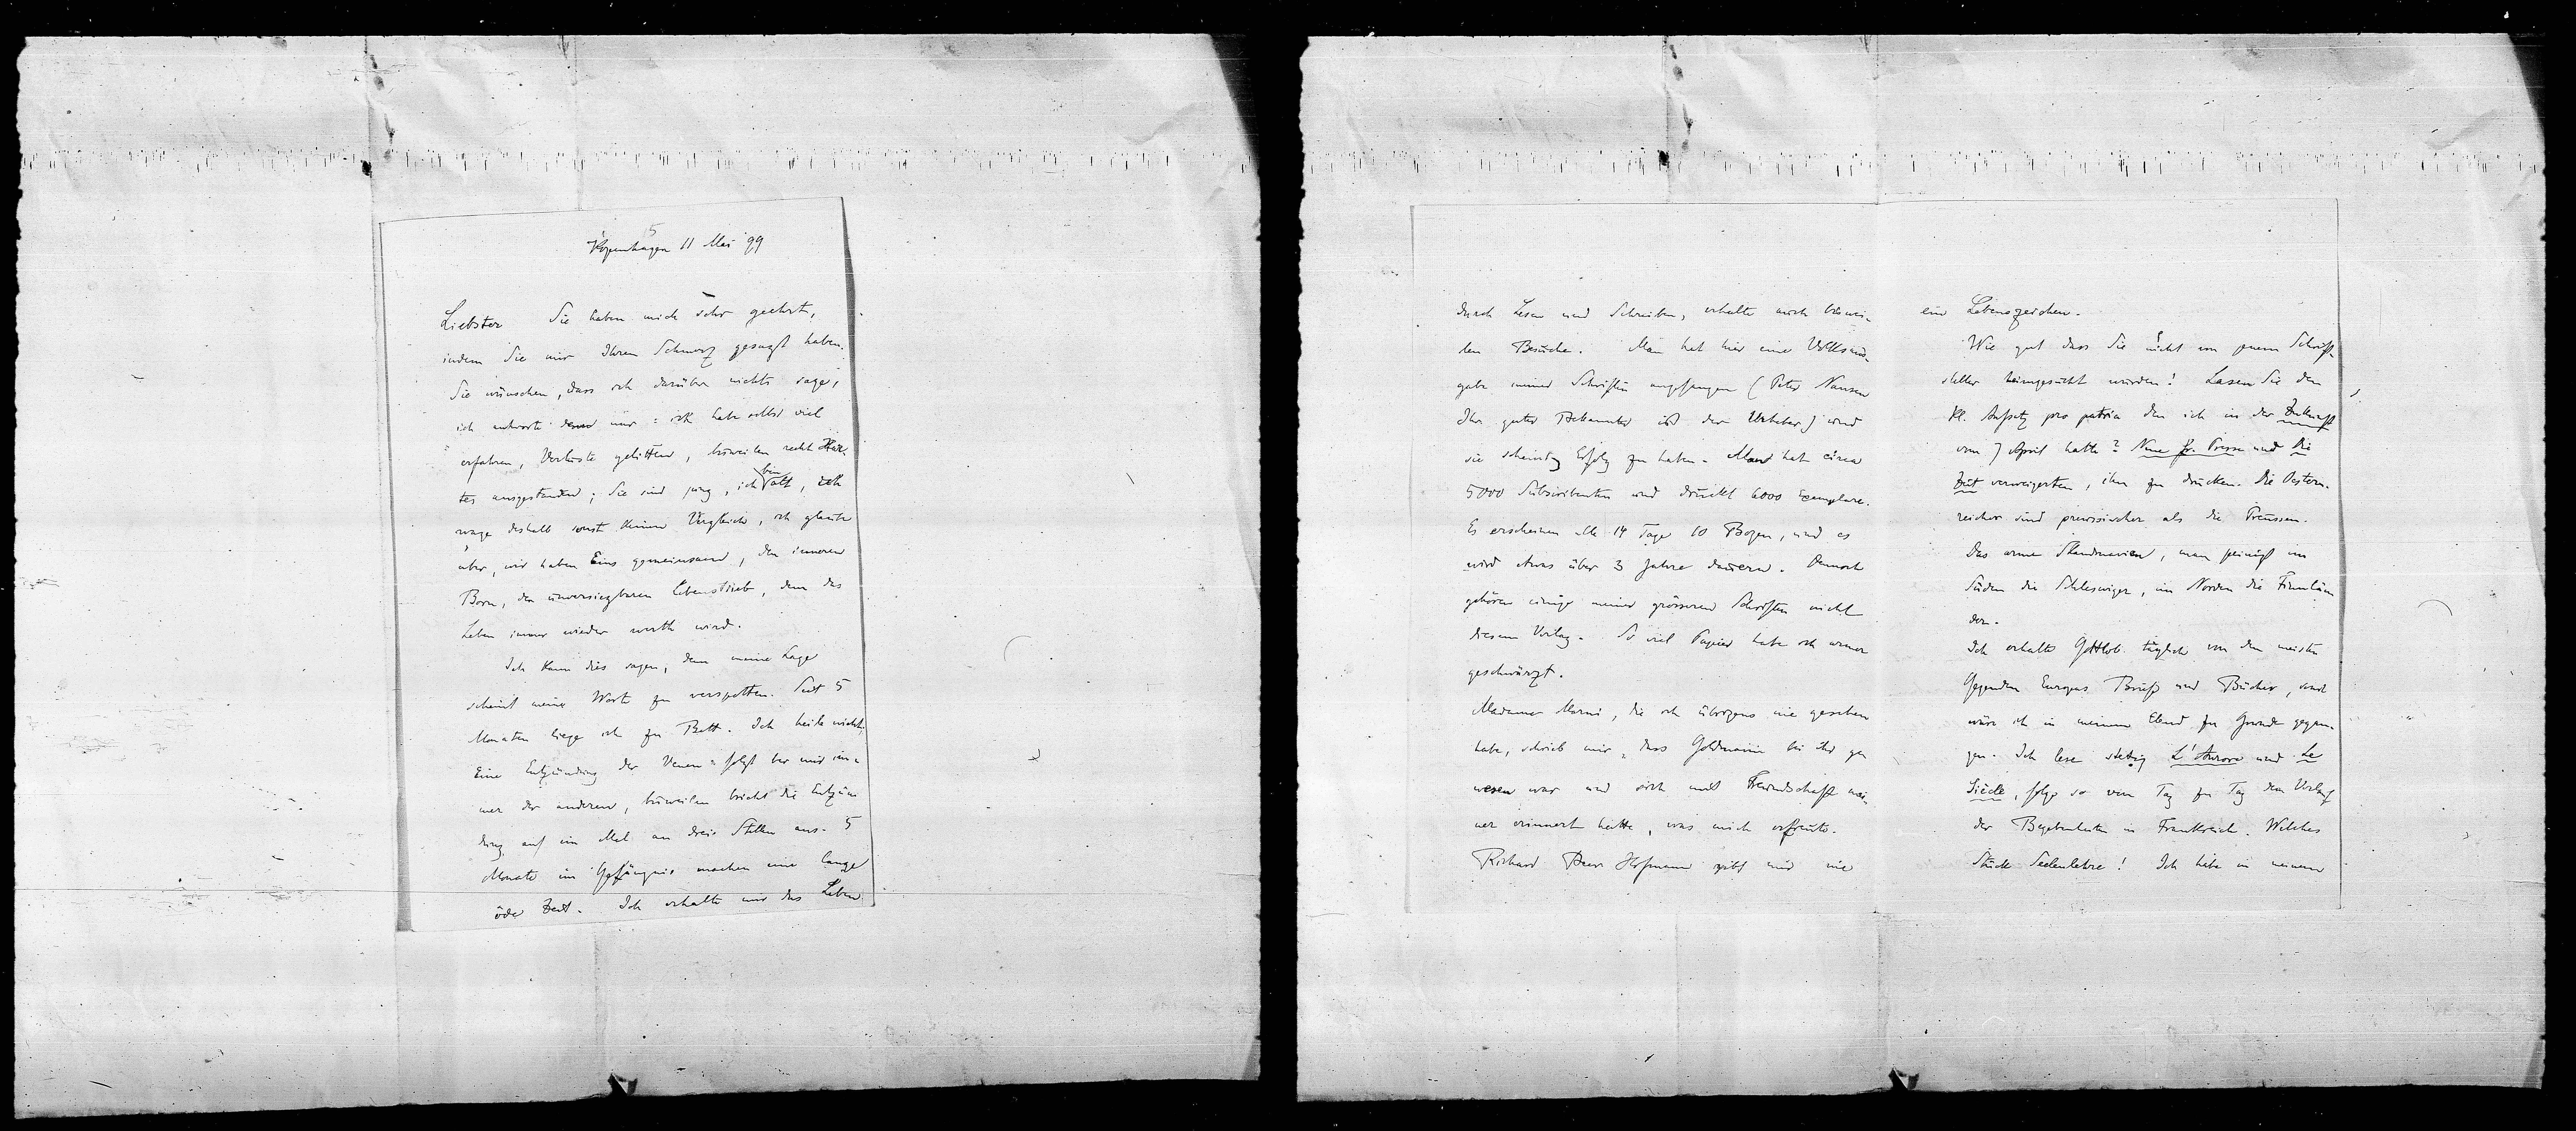 5
Kopenhagen 11 Mai 99
Liebster Sie haben mich sehr geehrt,
indem Sie mir Ihren Schmerz gesagt haben.
Sie wünschen, dass ich darüber nichts sage,
ich antworte denn nur: ich habe selbst viel
erfahren, Verluste gelitten, bisweilen recht Har-
tes ausgestanden; Sie sind jung, ich bin alt, ich
wage deshalb sonst keinen Vergleich, ich glaube
aber, wir haben Eins gemeinsam, den inneren
Born, den unversiegbaren Lebenstrieb, dem das
Leben immer wieder werth wird.
Ich kann dies sagen, denn meine Lage
scheint meine Worte zu verspotten. Seit 5
Monaten liege ich zu Bett. Ich heile nicht,
Eine Entzündung der Venen folgt bei mir im-
mer der anderen, bisweilen bricht die Entzün-
dung auf ein Mal an drei Stellen aus. 5
Monate im Gefängnis machen eine lange
öde Zeit. Ich erhalte mir das Leben
durch Lesen und Schreiben, erhalte auch biswei-
len Besuche. Man hat hier eine Volksaus-
gabe meiner Schriften angefangen (Peter Nansen
Ihr guter Bekannter ist der Urheber) und
sie scheint Erfolg zu haben. Man hat circa
5000 Subscribenten und druckt 6000 Exemplare.
Es erscheinen alle 14 Tage 10 Bogen, und es
wird etwas über 3 Jahre dauern. Dennoch
gehören einige meiner grösseren Schriften nicht
diesem Verlag. So viel Papier habe ich armer
geschwärzt.
Madame Marni, die ich übrigens nie gesehen
habe, schrieb mir, dass Goldmann bei ihr ge-
wesen war und sich mit Freundschaft mei-
ner erinnert hatte, was mich erfreute.
Richard Beer Hofmann gibt mir nie
ein Lebenszeichen.
Wie gut dass Sie nicht von jenem Schrift-
steller heimgesucht wurden! Lasen Sie den
kl. Aufsatz pro patria den ich in der Zukunft
vom 7 April hatte? Neue fr. Presse und Die
Zeit verweigerten, ihn zu drucken. Die Oester-
reicher sind preussischer als die Preussen.
Das arme Skandinavien, man peinigt im
Süden die Schleswiger, im Norden die Finnlän-
der.
Ich erhalte Gottlob täglich von den meisten
Gegenden Europas Briefe und Bücher, sonst
wäre ich in meinem Elend zu Grunde gegan-
gen. Ich lese stetig L'Aurore und Le
Siècle, folge so von Tag zu Tag dem Verlauf
der Begebenheiten in Frankreich. Welches
Stück Seelenlehre! Ich habe in meinem